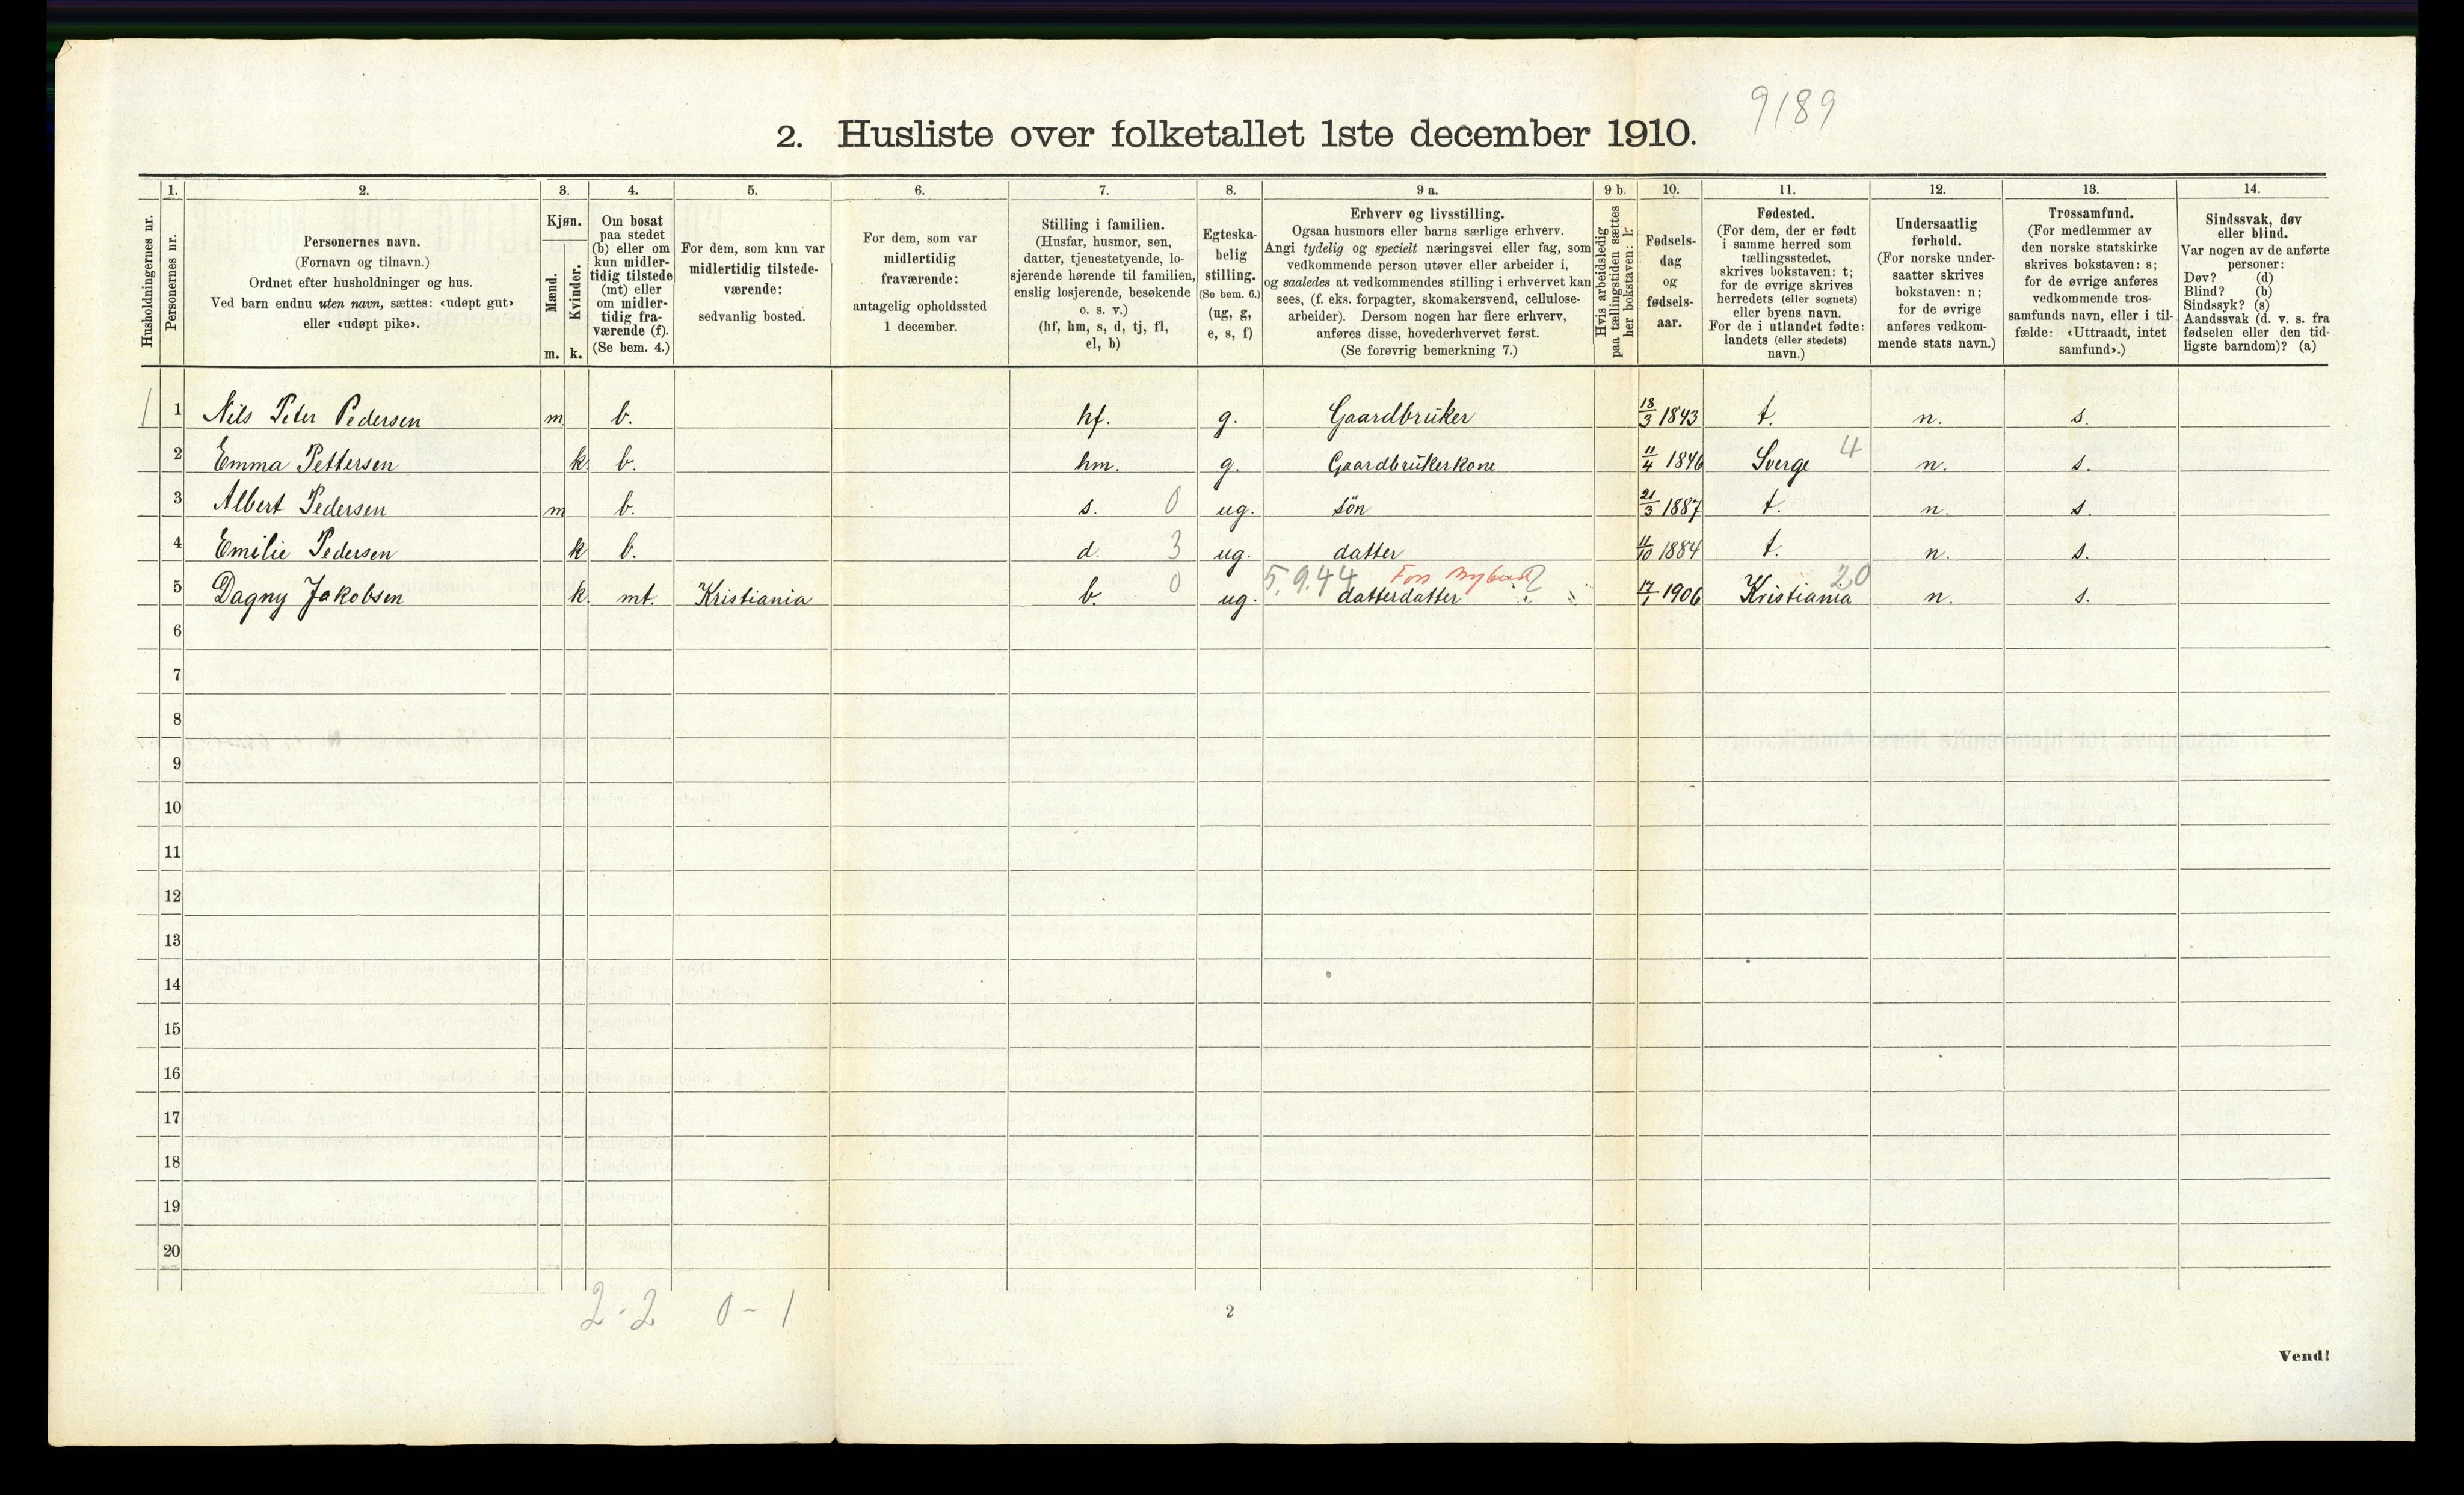 9189
2. Husliste over folketallet 1ste december 1910.
Husholdningernes nr.
1.
Personernes nr.
2.
Personernes navn.
(Fornavn og tilnavn.)
Ordnet efter husholdninger og hus.
Ved barn endnu uten navn, sættes: «udøpt gut»
eller «udøpt pike».
3.
Kjøn.
Mænd.
m.
Kvinder.
k.
4.
Om bosat
paa stedet
(b) eller om
kun midler-
tidig tilstede
(mt) eller
om midler-
tidig fra-
værende (f).
(Se bem. 4.)
5.
For dem, som kun var
midlertidig tilstede-
værende:
sedvanlig bosted.
6.
For dem, som var
midlertidig
fraværende:
antagelig opholdssted
1 december.
7.
Stilling i familien.
(Husfar, husmor, søn,
datter, tjenestetyende, lo-
sjerende hørende til familien,
enslig losjerende, besøkende
o. s. v.)
(hf, hm, s, d, tj, fl,
el, b)
8.
Egteska-
belig
stilling.
(Se bem. 6.)
(ug, g,
e, s, f)
9 a.
Erhverv og livsstilling.
Ogsaa husmors eller barns særlige erhverv.
Angi tydelig og specielt næringsvei eller fag, som
vedkommende person utøver eller arbeider i,
og saaledes at vedkommendes stilling i erhvervet kan
sees, (f. eks. forpagter, skomakersvend, cellulose-
arbeider). Dersom nogen har flere erhverv,
anføres disse, hovederhvervet først.
(Se forøvrig bemerkning 7.)
9 b.
Hvis arbeidsledig
paa tællingstiden sættes
her bokstaven: l.
10.
Fødsels-
dag
og
fødsels-
aar.
11.
Fødested.
(For dem, der er født
i samme herred som
tællingsstedet,
skrives bokstaven: t;
for de øvrige skrives
herredets (eller sognets)
eller byens navn.
For de i utlandet fødte:
landets (eller stedets)
navn.)
12.
Undersaatlig
forhold.
(For norske under-
saatter skrives
bokstaven: n;
for de øvrige
anføres vedkom-
mende stats navn.)
13.
Trossamfund.
(For medlemmer av
den norske statskirke
skrives bokstaven: s;
for de øvrige anføres
vedkommende tros-
samfunds navn, eller i til-
fælde: «Uttraadt, intet
samfund».)
14.
Sindssvak, døv
eller blind.
Var nogen av de anførte
personer:
Døv? (d)
Blind? (b)
Sindssyk? (s)
Aandssvak (d. v. s. fra
fødselen eller den tid-
ligste barndom)? (a)
1 1 Nils Peter Pedersen m b. hf. g. Gaardbruker 18/3 1843 t. n. s.
2 Emma Pettersen k b. hm. g. Gaardbrukerkone 11/4 1846 Sverge 4 n. s.
3 Albert Pedersen m b. s. 0 ug. sön 21/3 1887 t. n. s.
4 Emilie Pedersen k b. d. 3 ug. datter 11/10 1884 t. n. s.
5.9.44
5 Dagny Jakobsen k mt. Kristiania b. 0 ug. datterdatter 17/1 1906 Kristiania 20 n. s.
6
7
8
9
10
11
12
13
14
15
16
17
18
19
20
2-2 0-1
2
Vend!